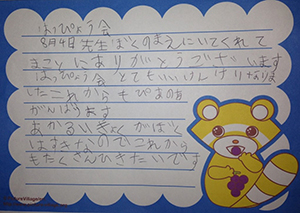 はっぴょう会
8月4日 先生ぼくのまえにいてくれて
まことにありがとうございます
はっぴょう会 とてもいいけんけりなりま
したこれからもぴあのお
がんばります
あかるいきょくがぼく
はすきなのでこれから
もたくさんひきたいです